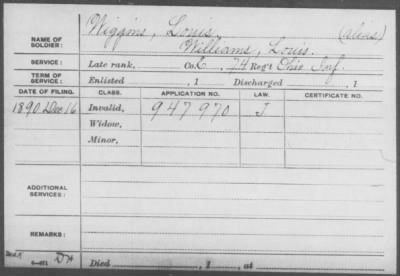 NAME OF SOLDIER: Wiggins, Louis,
Williams, Louis. (alias)
SERVICE: Late rank, Co. E, 74 Reg't Ohio Inf.
TERM OF SERVICE: Enlisted , 1 Discharged , 1
DATE OF FILING. CLASS. APPLICATION NO. LAW. CERTIFICATE NO.
1890 Dec 16 Invalid, 947970 J
Widow,
Minor,
ADDITIONAL SERVICES:
REMARKS:
Died , 1 , at